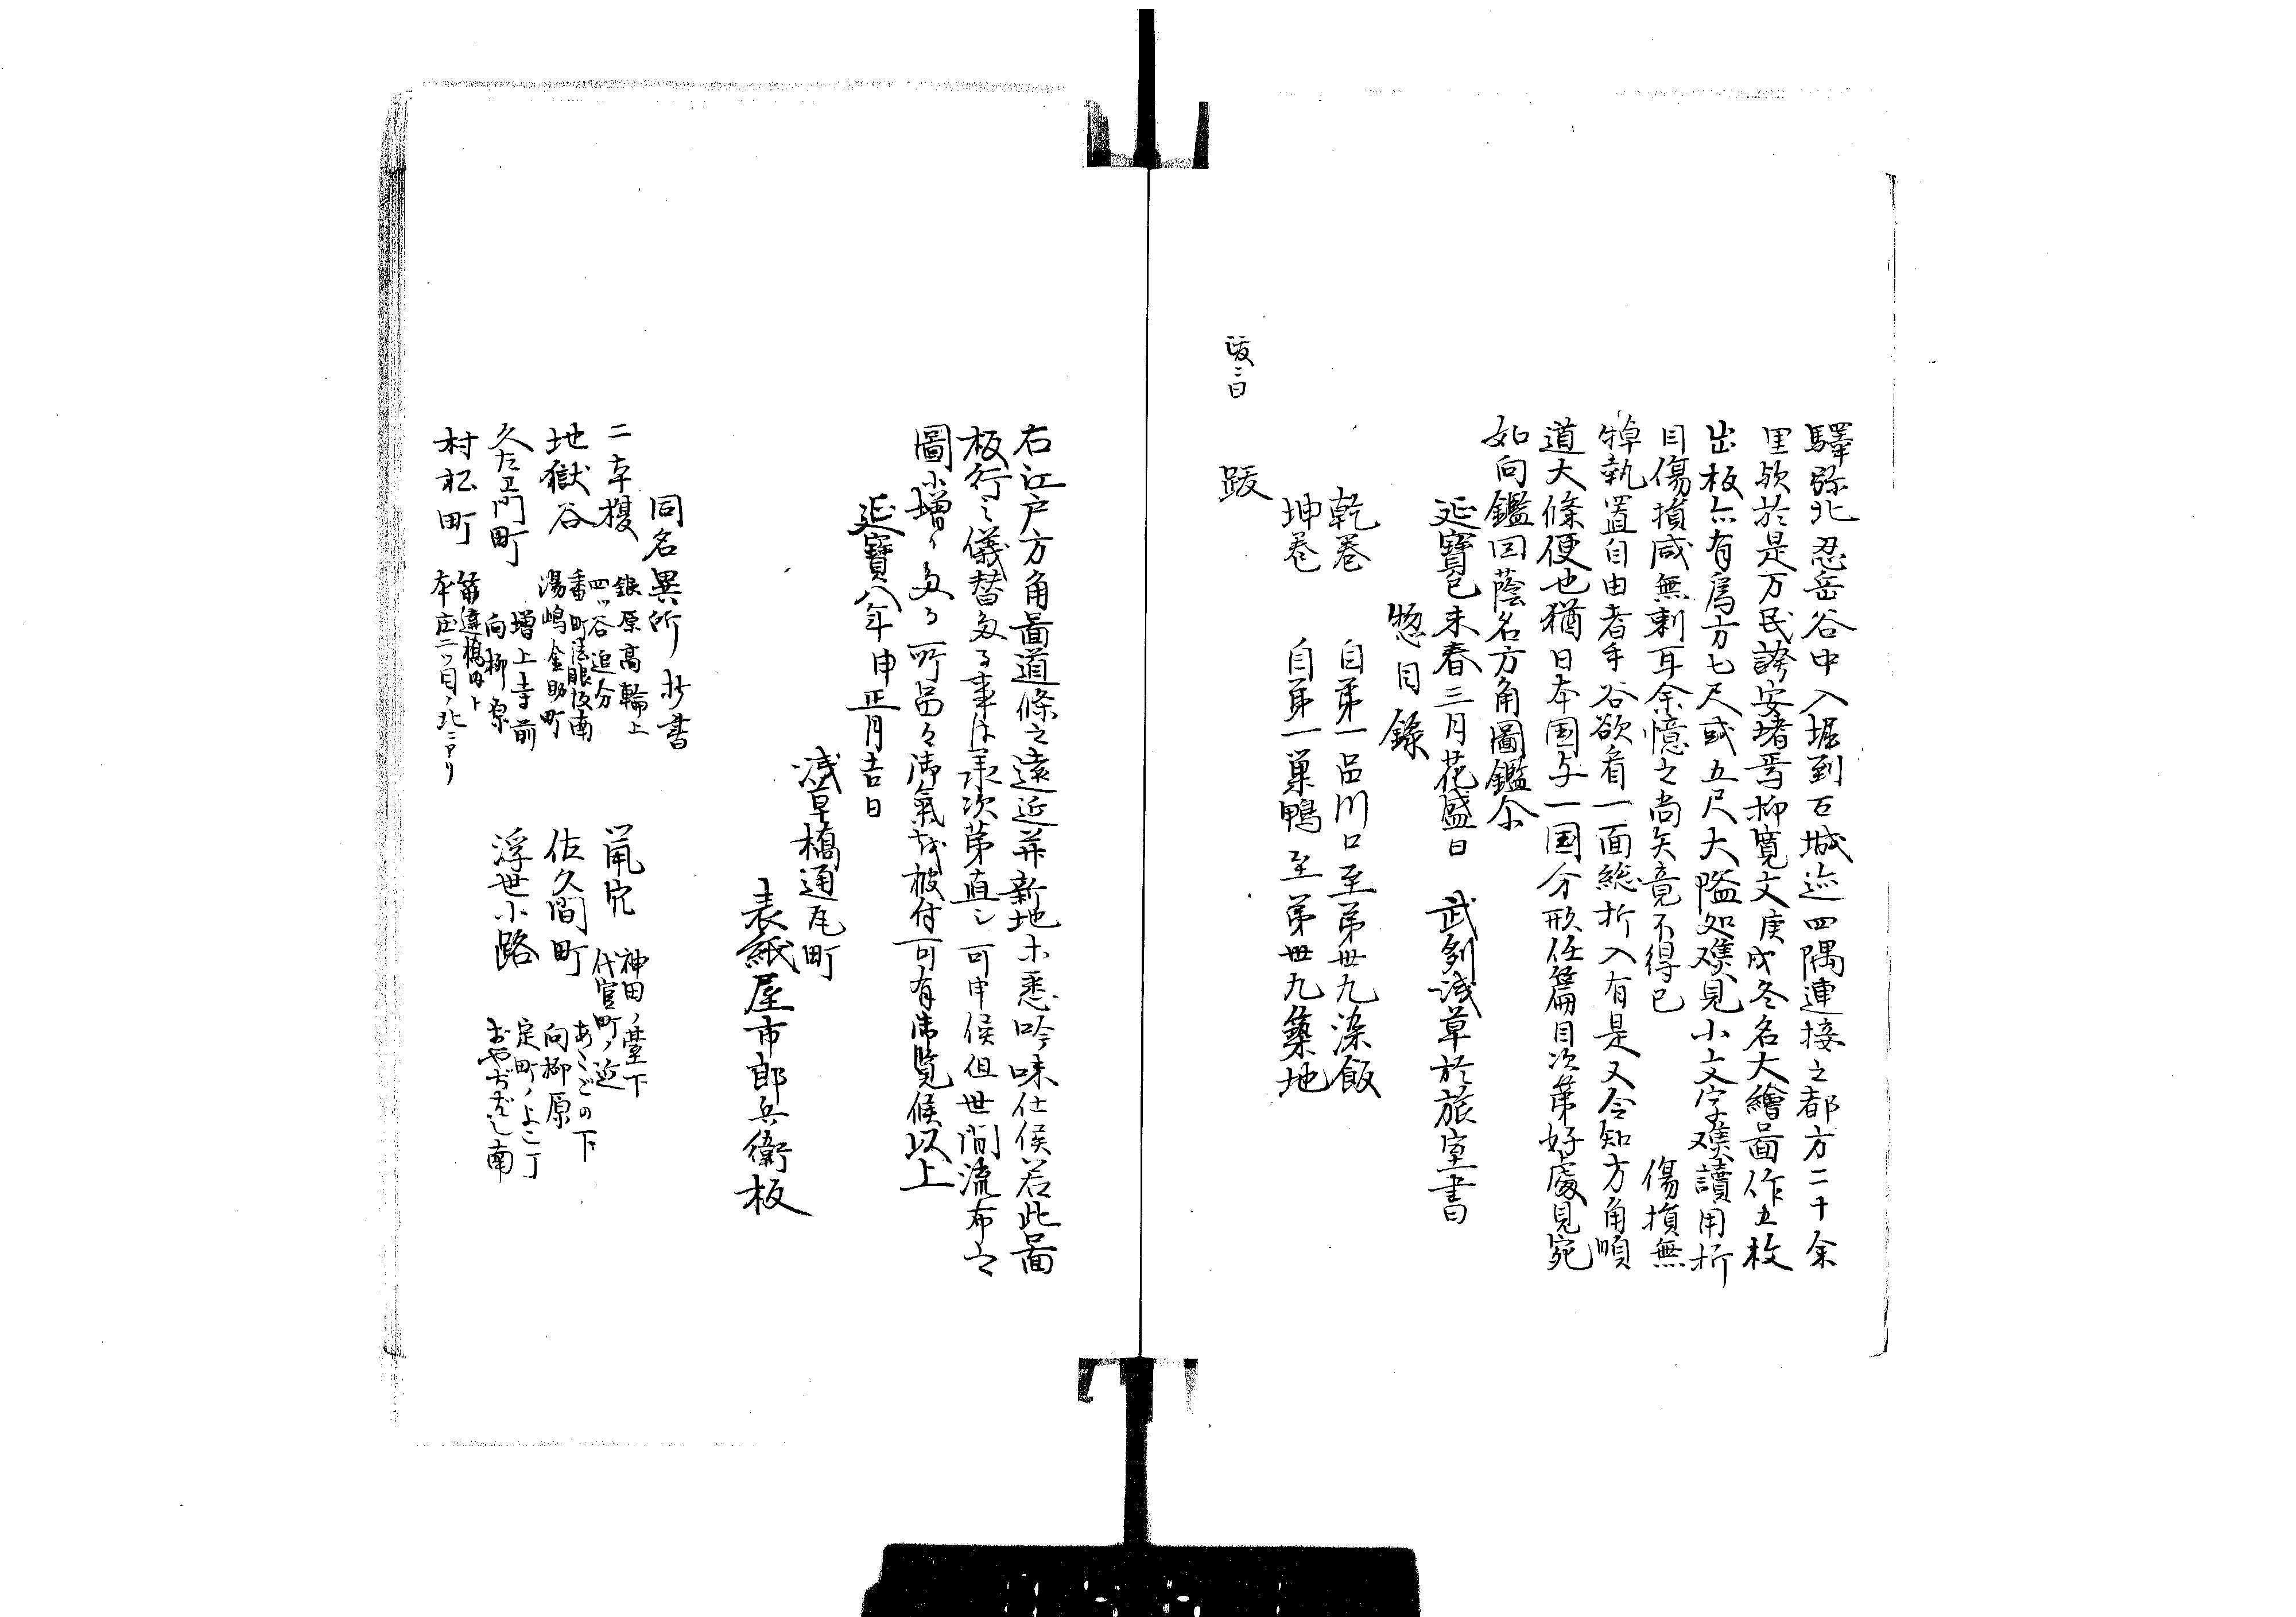 驛弥北忍岳谷中入堀到石城迩四隅連接之都方二十余
里欤於是万民誇安堵焉抑寛文庚戌冬名大繪啚作五枚
出板亦有爲方七尺或五尺大隘処难見小文字难讀用折
目傷損咸無剰耳余憶之尚矣竟不得已　傷損無
執置自由者乎谷欲看一面総折入有是又令知方角順
道大條便也猶日本国与一国分形任篇目次第好處見宛
如向鑑回蔭名方角圖鑑尒
延寶己未春三月花盛日　武列浅草於旅室書
惣目録
乾巻　自第一品川口至第卅九染飯
坤巻　自第一巣鴨至第卅九築地
跋ニ曰
跋
右江戸方角啚道條之遠近并新地ホ悉吟味仕候若此啚
板行之儀替多る事は承次第直シ可申候但世間流布之
圖ニ増多る所品々御氣を被付可有御覧候以上
延寶八年申正月吉日
浅草橋通瓦町
表紙屋市郎兵衛板
同名異所抄書
二本榎　銀原高輪上　四ッ谷追分
地獄谷　番町法眼坂南　湯嶋金助町
久左ヱ門町　増上寺前　向柳原
村松町　筋違橋内ト　本庄二ッ目ノ北ニアリ
鼠穴　神田ノ臺下　代官町ノ近
佐久間町　あたごの下　向柳原
浮世小路　定町ノよこ丁　おやぢばし南